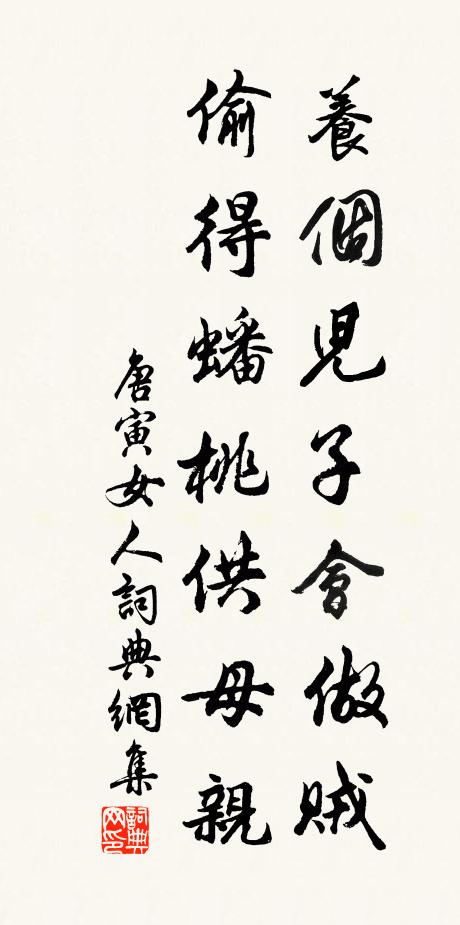 養個兒子會做賊
偷得蟠桃供母親
唐寅女人詞典網集
詞典网印